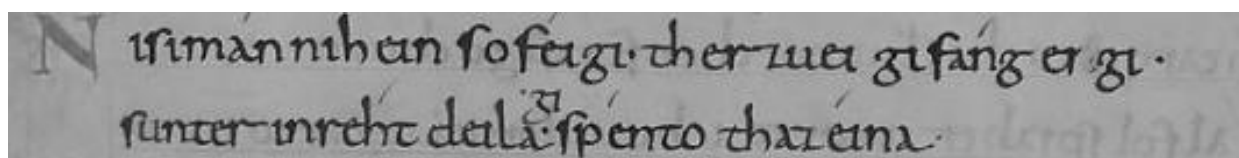 Nisimán nihein so feigi· ther zuei gifáng ei gi·
sunter inréht deila·gispénto thaz éina·